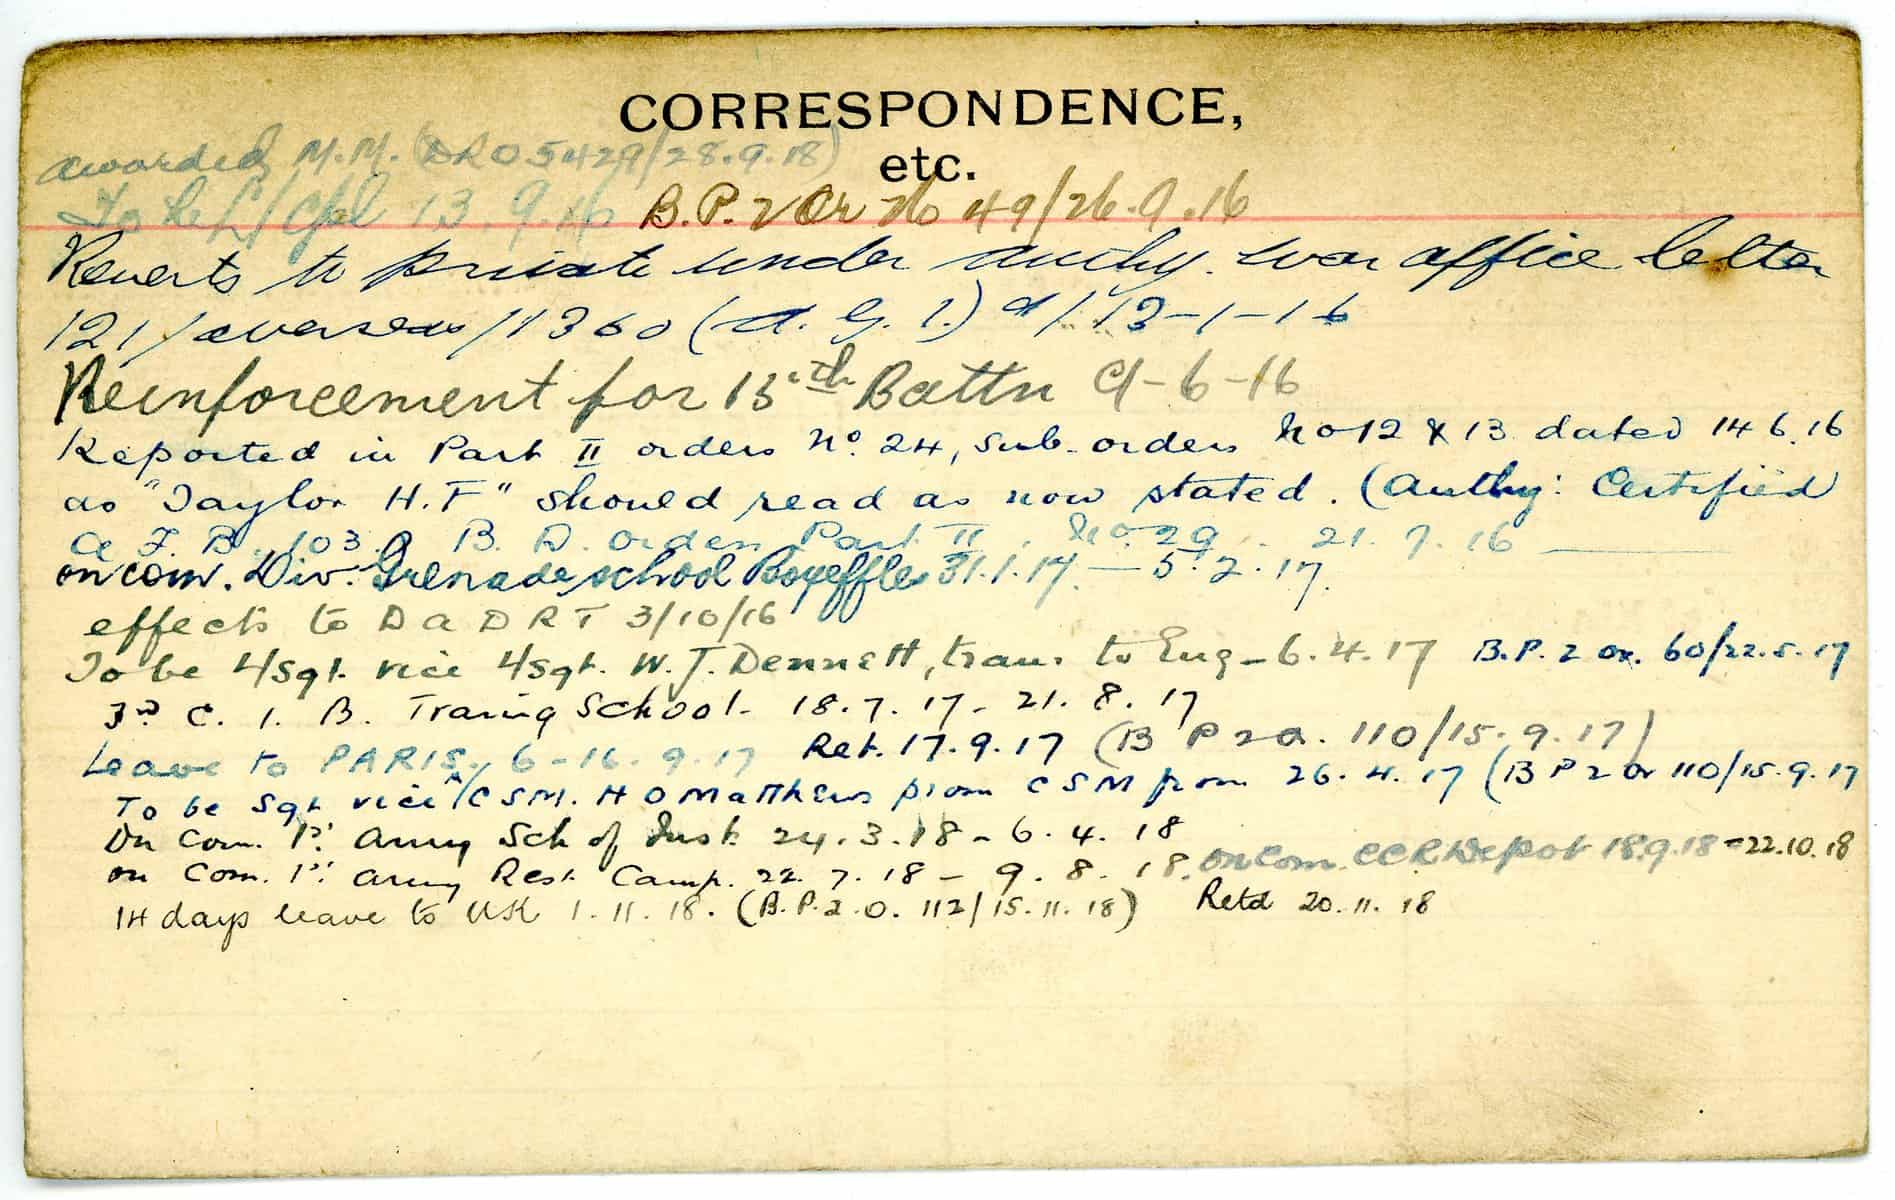 CORRESPONDENCE,
awarded M.M. (DRO 5429/28.9.18)
etc.
To be L/Cpl 13.9.16 B.P. 2 Or No 49/26.9.16
Reverts to private under authy. war office letter
121/overseas/1360 (A. G. 1.) d/ 13-1-16
Reinforcement for 13th Battn 9-6-16
Reported in Part II orders No. 24, sub-orders No 12 & 13 dated 14 6.16
as "Taylor H.F" should read as now stated. (Authy: Certified
A F. B. 103. B. D. orders Part II. No 29. 21. 7. 16
on com. Div. Grenade school 31.1.17 — 5.2.17.
effects to D a D R T 3/10/16
To be L/Sgt. vice L/Sgt. W.J. Dennett, trans to Eng - 6.4.17 B.P. 2 Or. 60/22.5.17
3rd C. I. B. Traing School - 18.7.17 - 21. 8. 17
Leave to PARIS. 6-16.9.17 Ret. 17.9.17 (B P 2 O. 110/15.9.17)
To be Sgt vice CSM. H O Matthews prom CSM from 26.4.17 (B P 2 Or 110/15.9.17
On Com. 1st Army Sch of Inst 24.3.18 - 6.4.18
on Com. 1st Army Rest Camp. 22.7.18 - 9.8.18. on Com. CCR Depot 18.9.18 - 22.10.18
14 days leave to UK 1.11.18. (B.P.2.O. 112/15.11.18) Retd 20.11.18